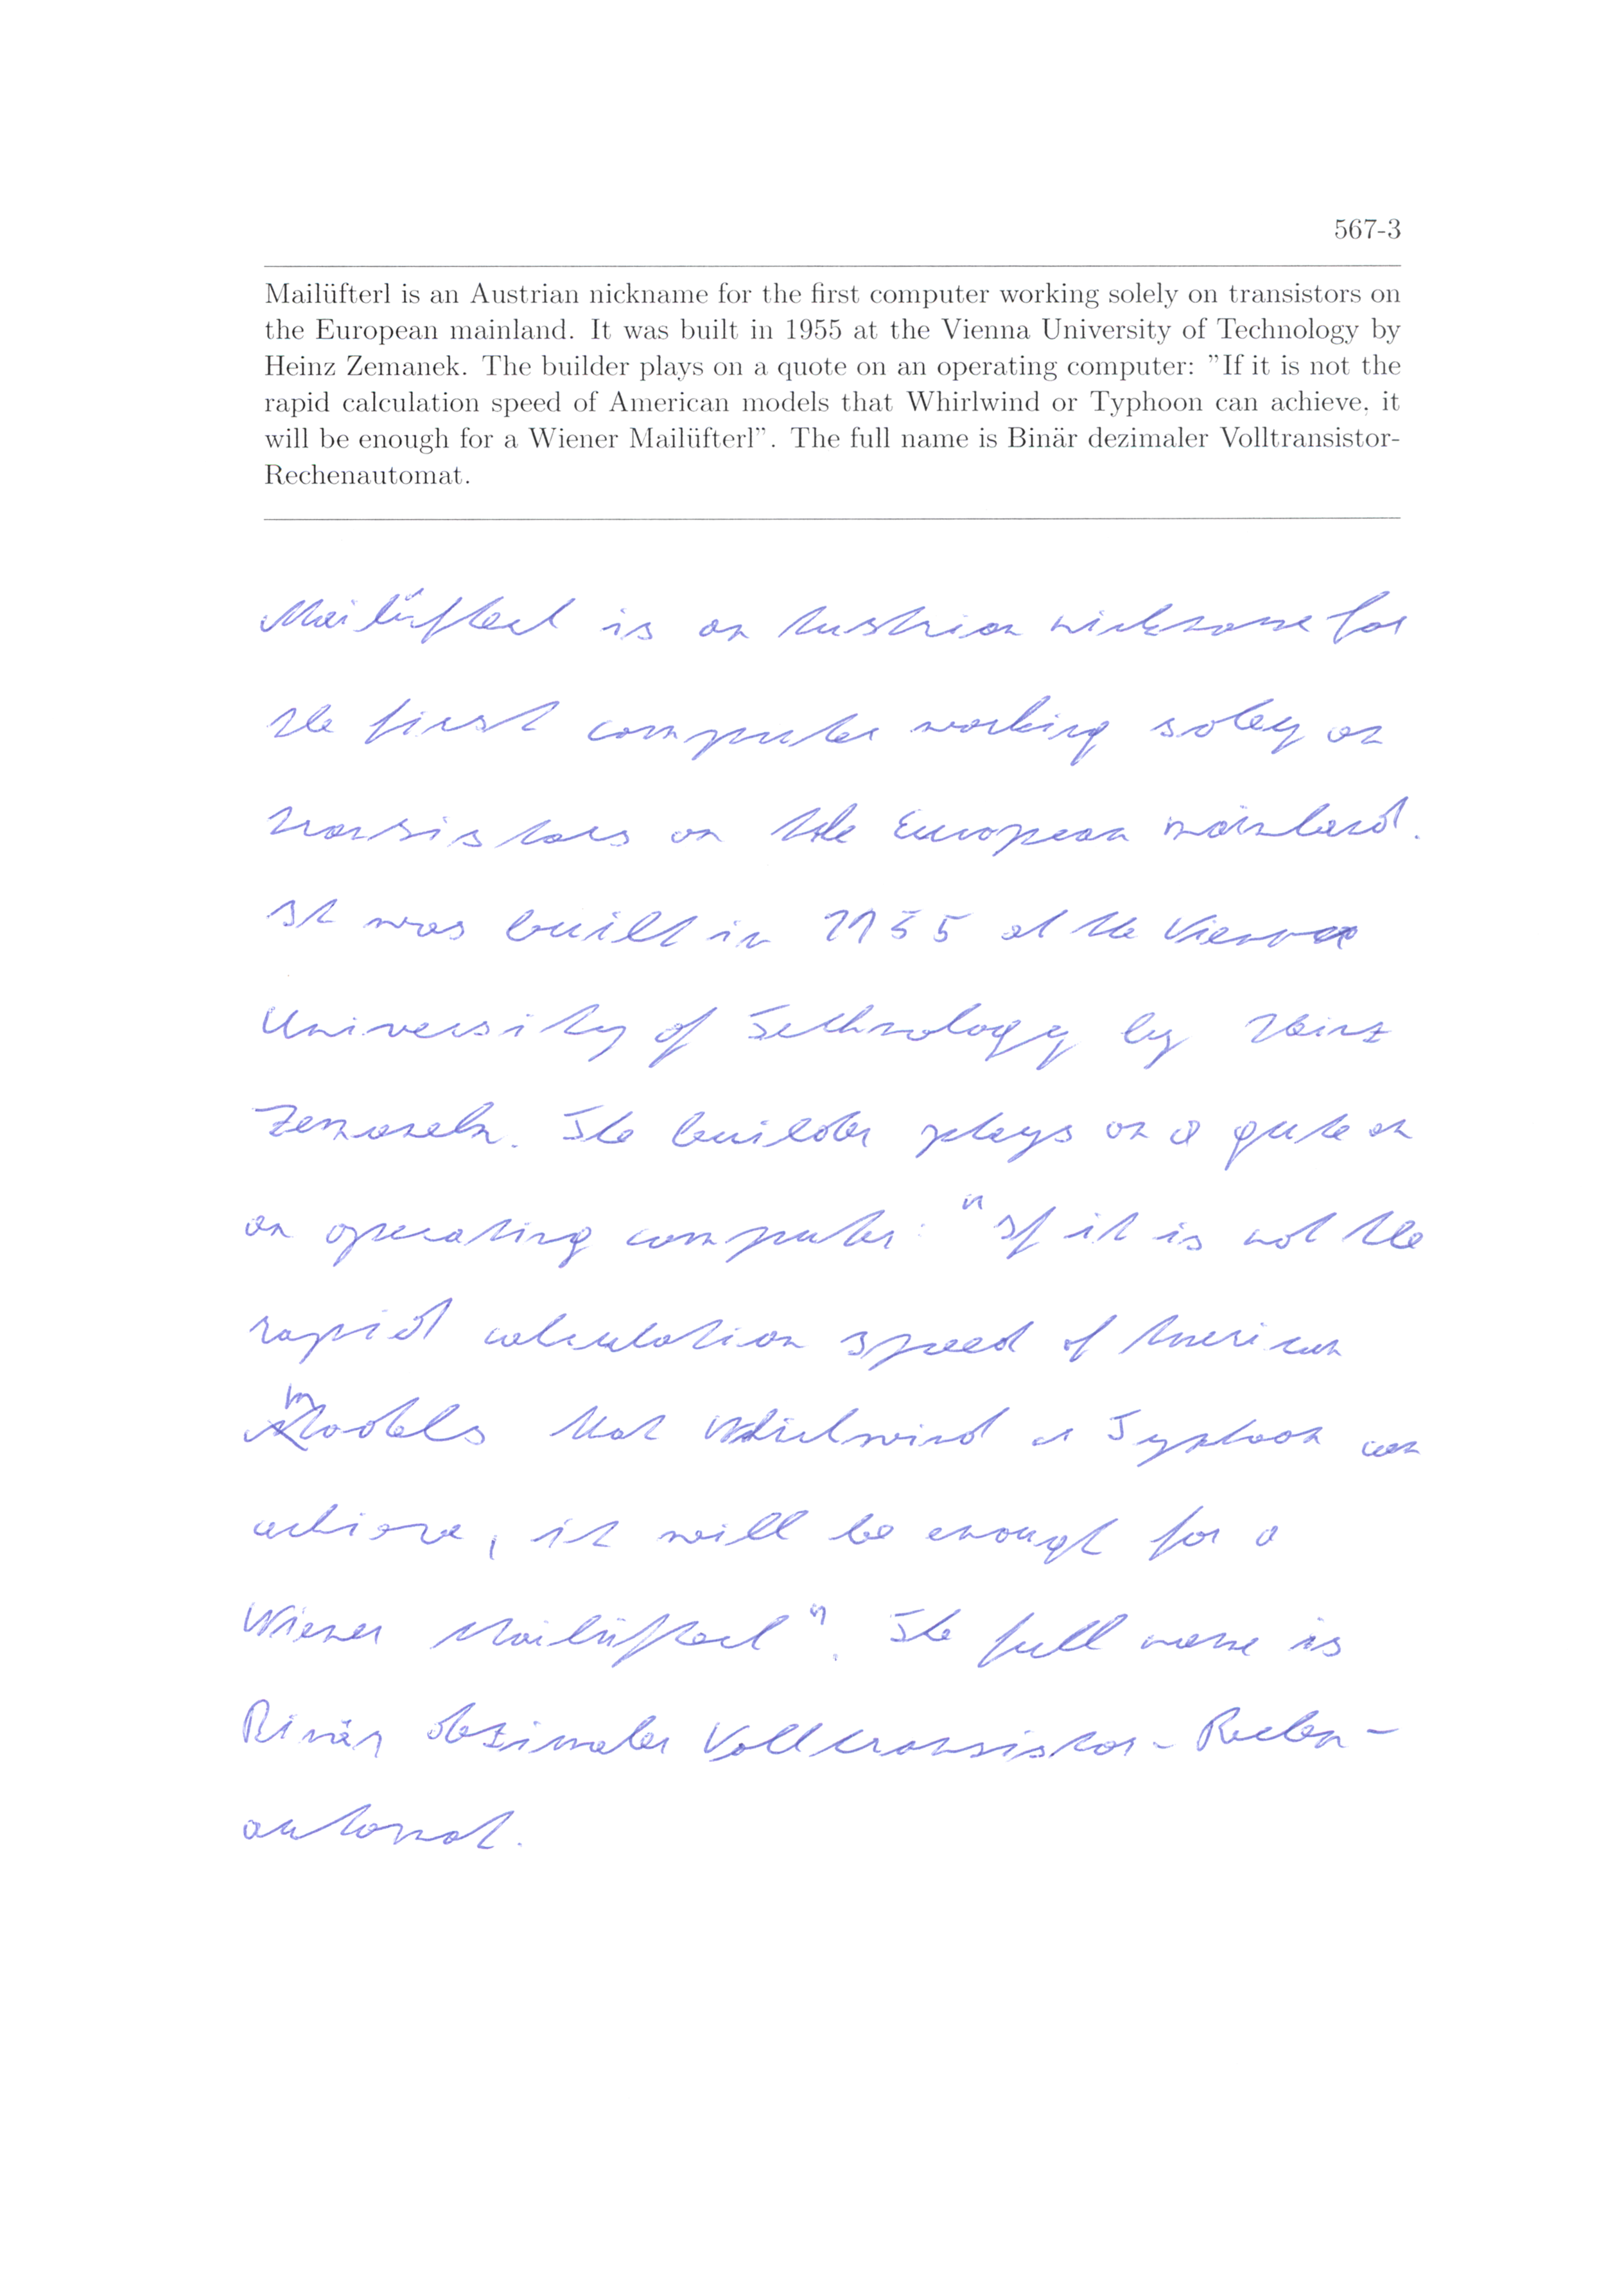 567-3
Mailüfterl is an Austrian nickname for the first computer working solely on transistors on
the European mainland. It was built in 1955 at the Vienna University of Technology by
Heinz Zemanek. The builder plays on a quote on an operating computer: ”If it is not the
rapid calculation speed of American models that Whirlwind or Typhoon can achieve, it
will be enough for a Wiener Mailüfterl”. The full name is Binär dezimaler Volltransistor-
Rechenautomat.
Mailüfterl is an Austrian nickname for
the first computer working soley on
transistors on the European mainland.
It was built in 1955 at the Vienna
University of Technology by Heinz
Zemanek. The builder plays on a qute on
an operating computer: "If it is not the
rapid calculation speed of American
models that Whirlwind or Typhoon can
achieve, it will be enough for a
Wiener Mailüfterl". The full name is
Binär dezimaler Volltransistor-Rechen-
automat.